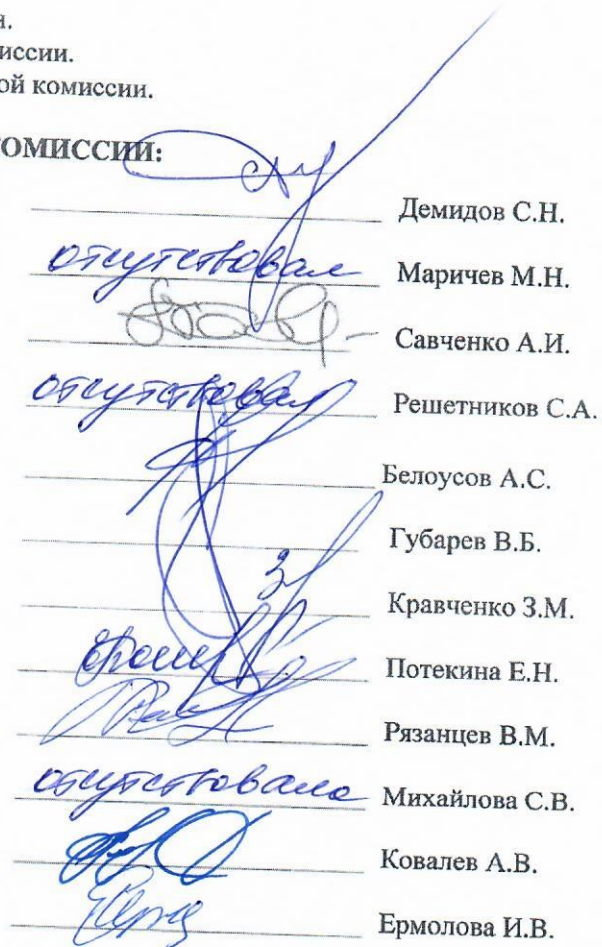 и.
миссии.
ой комиссии.
КОМИССИИ:
Демидов С.Н.
отсутствовал Маричев М.Н.
Савченко А.И.
отсутствовал Решетников С.А.
Белоусов А.С.
Губарев В.Б.
Кравченко З.М.
Потекина Е.Н.
Рязанцев В.М.
отсутствовала Михайлова С.В.
Ковалев А.В.
Ермолова И.В.